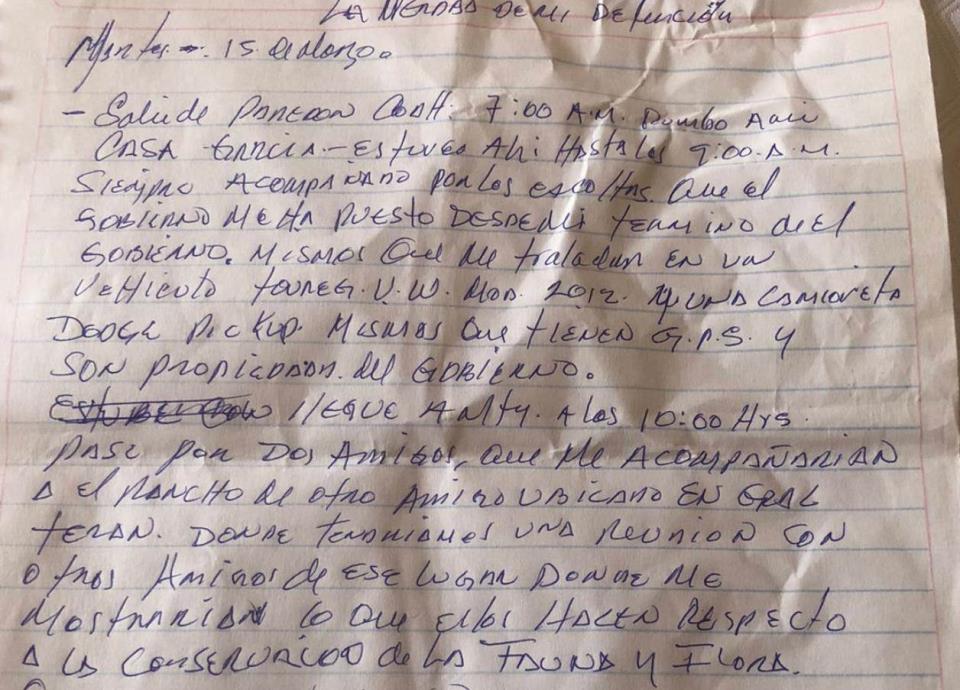 LA VERDAD DE MI Detención
Martes -. 15 de Marzo.
- Sali de PAREDON COAH. 7:00 A.M. Rumbo A
CASA GARCIA - Estuve Ahi HASTA las 9:00 A.M.
Siempre ACOMPAÑADO por los escoltas. Que el
GOBIERNO ME HA PUESTO DESDE MI TERMINO del
GOBIERNO. MISMOS Que Me traladan EN UN
VeHiculo toureg. V.W. MOD. 2012. Y UNA CAMIONETA
DODGE PICKUP. MISMOS Que tIENEN G.P.S. Y
SON PROPIEDAD. del GOBIERNO.
llEGUE A Mty. A las 10:00 Hrs.
PASE por DOS AMIGOS, Que Me ACOMPAÑARIAN
A el RANCHO de otro AMIGO UBICADO EN GRAL
TERAN. DONDE TENDRIAMOS UNA REUNION CON
OTROS AMIGOS de ESE LUGAR DONDE ME
MOSTRARIAN lo Que ellos HACEN RESPECTO
A la CONSERVACIOO de LA FAUNA Y FLORA.